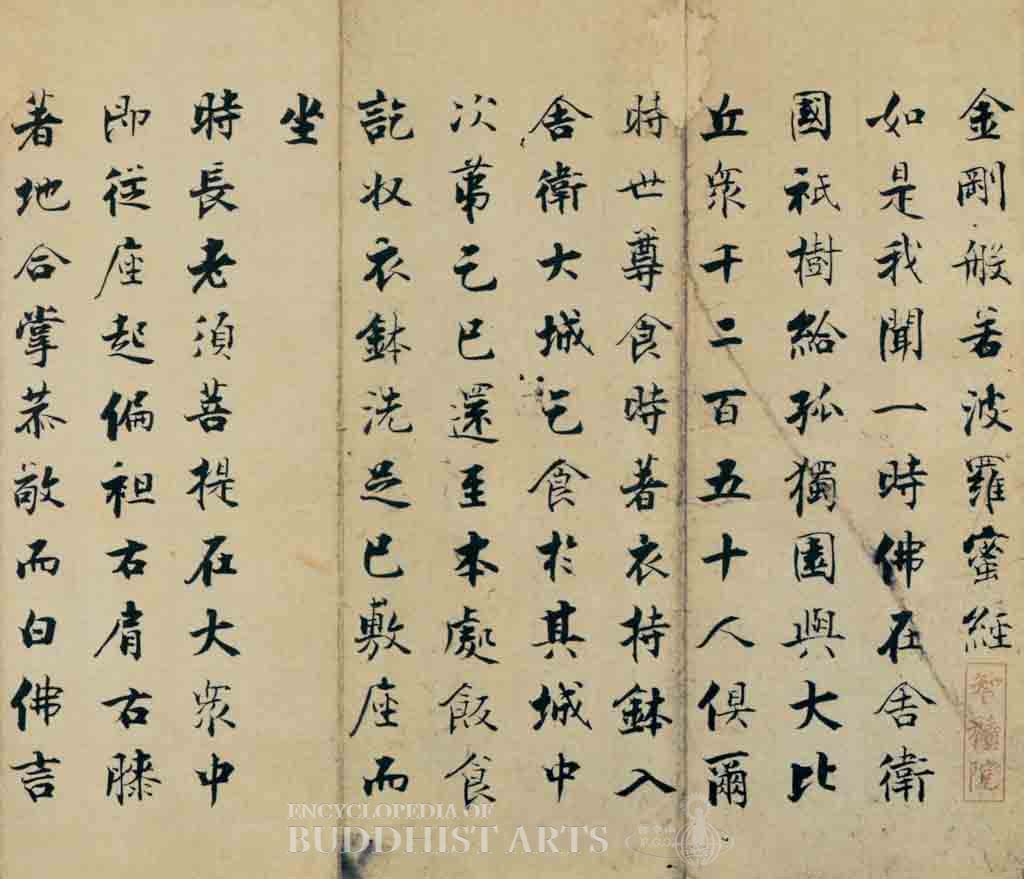 金剛般若波羅蜜經
智積院
如是我聞一時佛在舍衛
國祇樹給孤獨園與大比
丘眾千二百五十人俱爾
時世尊食時著衣持鉢入
舍衛大城乞食於其城中
次第乞已還至本處飯食
訖收衣鉢洗足已敷座而
坐
時長老須菩提在大眾中
即從座起偏袒右肩右膝
著地合掌恭敬而白佛言
ENCYCLOPEDIA OF
BUDDHIST ARTS